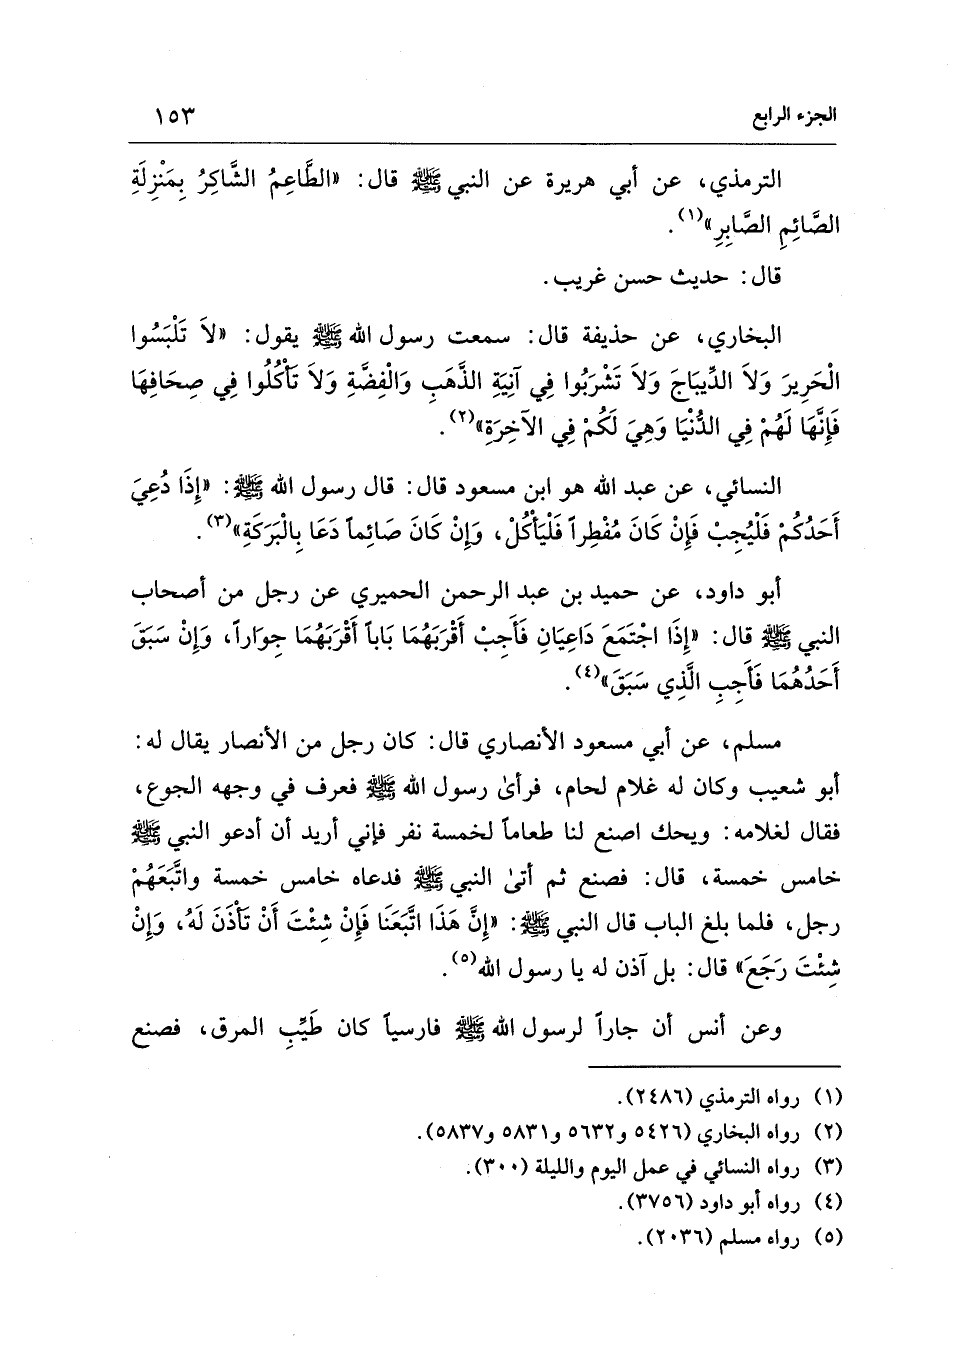 الجزء الرابع ١٥٣
الترمذي، عن أبي هريرة عن النبي ﷺ قال: «الطَّاعِمُ الشَّاكِرُ بِمَنْزِلَةِ
الصَّائِمِ الصَّابِرِ»(١).
قال: حديث حسن غريب.
البخاري، عن حذيفة قال: سمعت رسول الله ﷺ يقول: «لاَ تَلْبَسُوا
الْحَرِيرَ وَلاَ الدِّيبَاجَ وَلاَ تَشْرَبُوا فِي آنِيَةِ الذَّهَبِ وَالْفِضَّةِ وَلاَ تَأْكُلُوا فِي صِحَافِهَا
فَإِنَّهَا لَهُمْ فِي الدُّنْيَا وَهِيَ لَكُمْ فِي الآخِرَةِ»(٢).
النسائي، عن عبد الله هو ابن مسعود قال: قال رسول الله ﷺ: «إِذَا دُعِيَ
أَحَدُكُمْ فَلْيُجِبْ فَإِنْ كَانَ مُفْطِراً فَلْيَأْكُلْ، وَإِنْ كَانَ صَائِماً دَعَا بِالْبَرَكَةِ»(٣).
أبو داود، عن حميد بن عبد الرحمن الحميري عن رجل من أصحاب
النبي ﷺ قال: «إِذَا اجْتَمَعَ دَاعِيَانِ فَأَجِبْ أَقْرَبَهُمَا بَاباً أَقْرَبَهُمَا جِوَاراً، وَإِنْ سَبَقَ
أَحَدُهُمَا فَأَجِبِ الَّذِي سَبَقَ»(٤).
مسلم، عن أبي مسعود الأنصاري قال: كان رجل من الأنصار يقال له:
أبو شعيب وكان له غلام لحام، فرأىٰ رسول الله ﷺ فعرف في وجهه الجوع،
فقال لغلامه: ويحك اصنع لنا طعاماً لخمسة نفر فإني أريد أن أدعو النبي ﷺ
خامس خمسة، قال: فصنع ثم أتىٰ النبي ﷺ فدعاه خامس خمسة واتَّبَعَهُمْ
رجل، فلما بلغ الباب قال النبي ﷺ: «إِنَّ هَذَا اتَّبَعَنَا فَإِنْ شِئْتَ أَنْ تَأْذَنَ لَهُ، وَإِنْ
شِئْتَ رَجَعَ» قال: بل آذن له يا رسول الله(٥).
وعن أنس أن جاراً لرسول الله ﷺ فارسياً كان طَيِّبِ المرق، فصنع
(١) رواه الترمذي (٢٤٨٦).
(٢) رواه البخاري (٥٤٢٦ و٥٦٣٢ و٥٨٣١ و٥٨٣٧).
(٣) رواه النسائي في عمل اليوم والليلة (٣٠٠).
(٤) رواه أبو داود (٣٧٥٦).
(٥) رواه مسلم (٢٠٣٦).